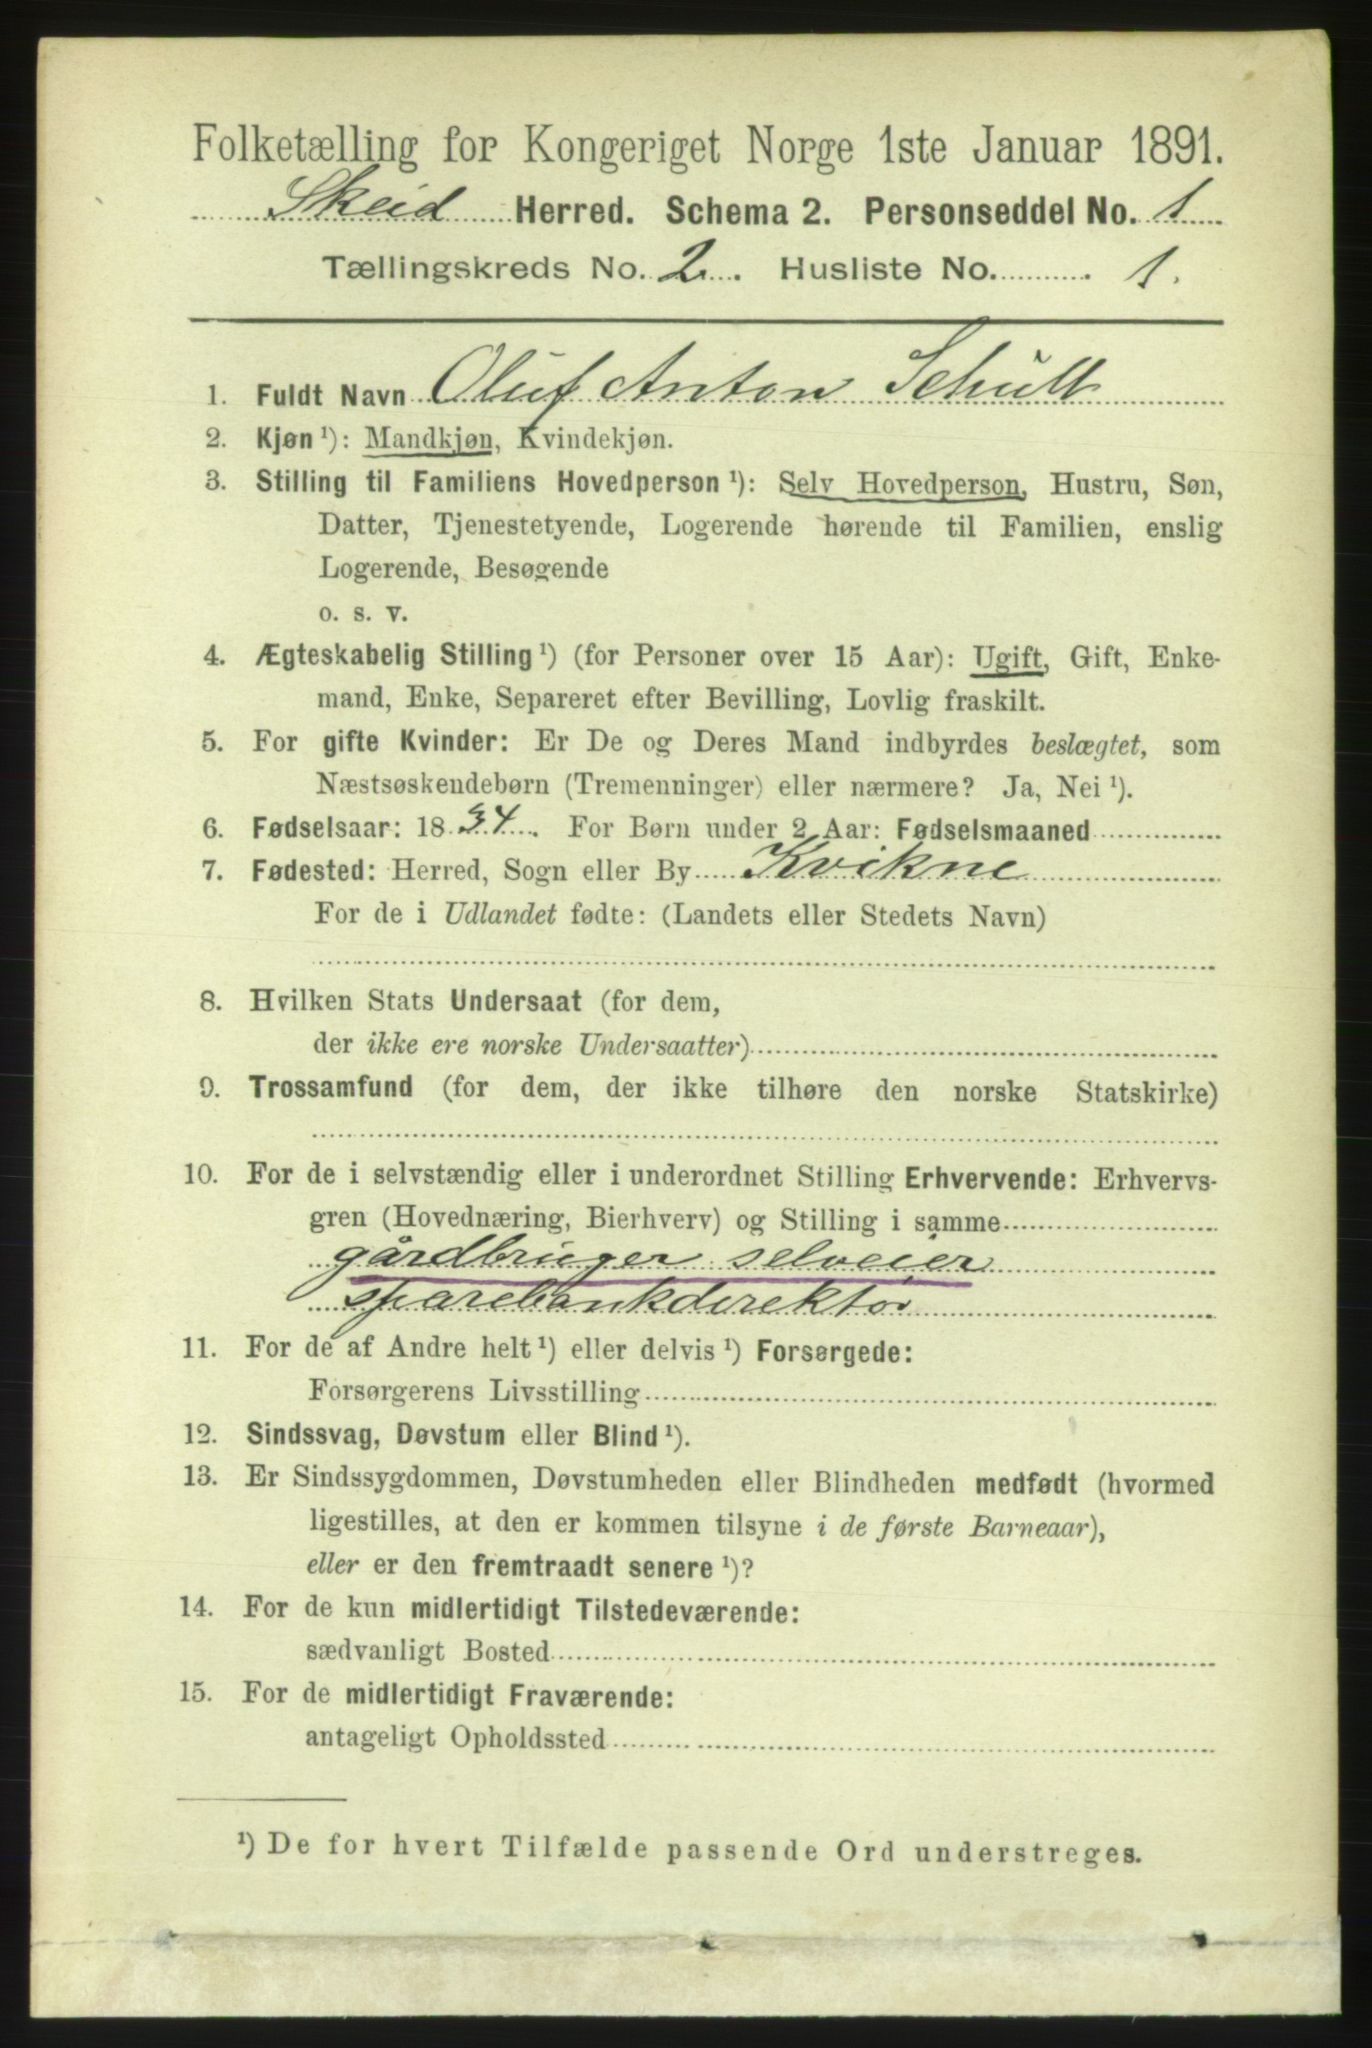 Folketælling for Kongeriget Norge 1ste Januar 1891.
Skeid Herred. Schema 2. Personseddel No. 1
Tællingskreds No. 2. Husliste No. 1.
1. Fuldt Navn Oluf Anton Schult
2. Kjøn ¹): Mandkjøn, Kvindekjøn.
3. Stilling til Familiens Hovedperson ¹): Selv Hovedperson, Hustru, Søn,
Datter, Tjenestetyende, Logerende hørende til Familien, enslig
Logerende, Besøgende
o. s. v.
4. Ægteskabelig Stilling ¹) (for Personer over 15 Aar): Ugift, Gift, Enke-
mand, Enke, Separeret efter Bevilling, Lovlig fraskilt.
5. For gifte Kvinder: Er De og Deres Mand indbyrdes beslægtet, som
Næstsøskendebørn (Tremenninger) eller nærmere? Ja, Nei ¹).
6. Fødselsaar: 1834. For Børn under 2 Aar: Fødselsmaaned
7. Fødested: Herred, Sogn eller By Kvikne
For de i Udlandet fødte: (Landets eller Stedets Navn)
8. Hvilken Stats Undersaat (for dem,
der ikke ere norske Undersaatter)
9. Trossamfund (for dem, der ikke tilhøre den norske Statskirke)
10. For de i selvstændig eller i underordnet Stilling Erhvervende: Erhvervs-
gren (Hovednæring, Bierhverv) og Stilling i samme
gårdbruger selveier
sparebankdirektør
11. For de af Andre helt ¹) eller delvis ¹) Forsørgede:
Forsørgerens Livsstilling
12. Sindssvag, Døvstum eller Blind ¹).
13. Er Sindssygdommen, Døvstumheden eller Blindheden medfødt (hvormed
ligestilles, at den er kommen tilsyne i de første Barneaar),
eller er den fremtraadt senere ¹)?
14. For de kun midlertidigt Tilstedeværende:
sædvanligt Bosted
15. For de midlertidigt Fraværende:
antageligt Opholdssted
¹) De for hvert Tilfælde passende Ord understreges.